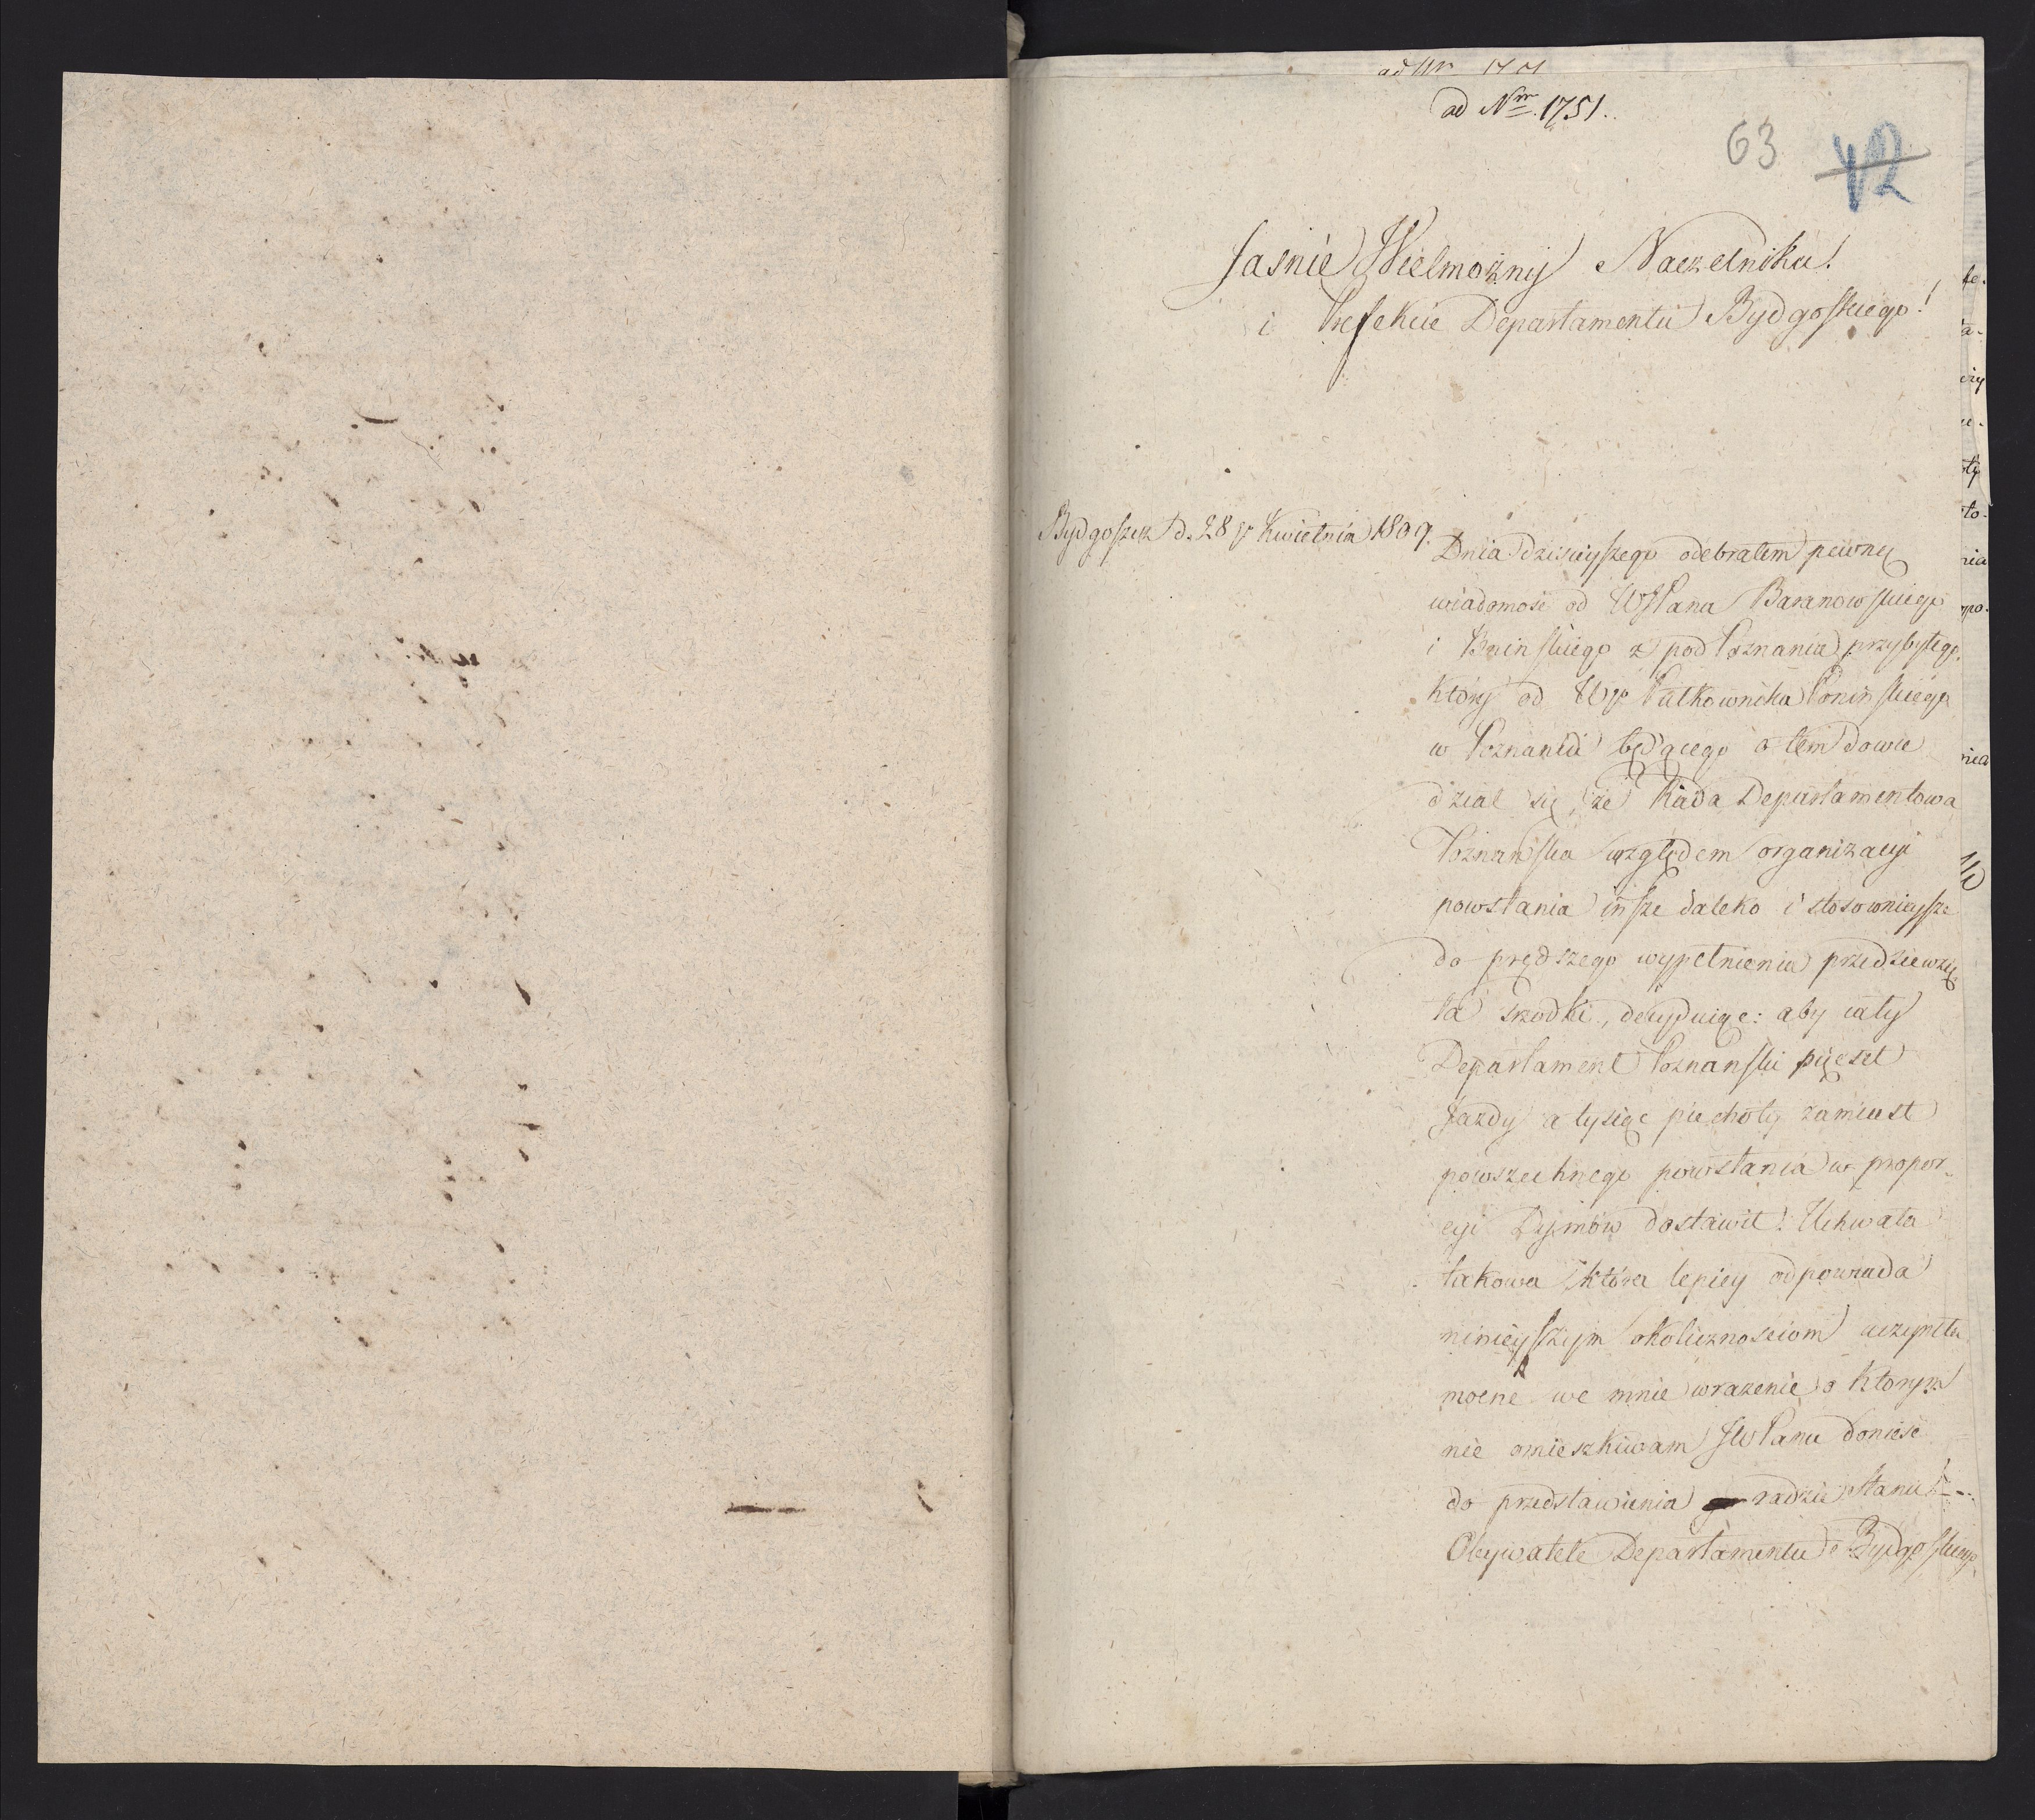 ad Nr 1751
ad Nrm. 1751.
63 42
Jasnie Wielmożny Naczelniku!
i Prefekcie Departamentu Bydgoskiego!
Bydgoszcz d. 28go Kwietnia 1809.
Dnia dzisieyszego odebrałem pewną
wiadomość od WPana Baranowskiego
i Bninskiego z pod Poznania przybyłego,
który od Wgo Pułkownika Poninskiego
w Poznaniu będącego o tem dowie
dział się, że Rada Departamentowa
Poznanska względem organizacyi
powstania insze daleko i stosownieysze
do prędszego wypełnienia przedsiewzię
ła srzodki, decyduiąc: aby cały
Departament Poznanski pięcset
Jazdy a tysiąc piechoty zamiast
powszechnego powstania w propor-
cyi Dymów dostawił! Uchwała
takowa która lepiey odpowiada
ninieyszym okolicznosciom uczyniła
mocne we mnie wrazenie o ktorym
nie omieszkiwam JWPanu donieść
do przedstawienia radzie stanu!
Obywatele Departamentu Bydgoskiego,